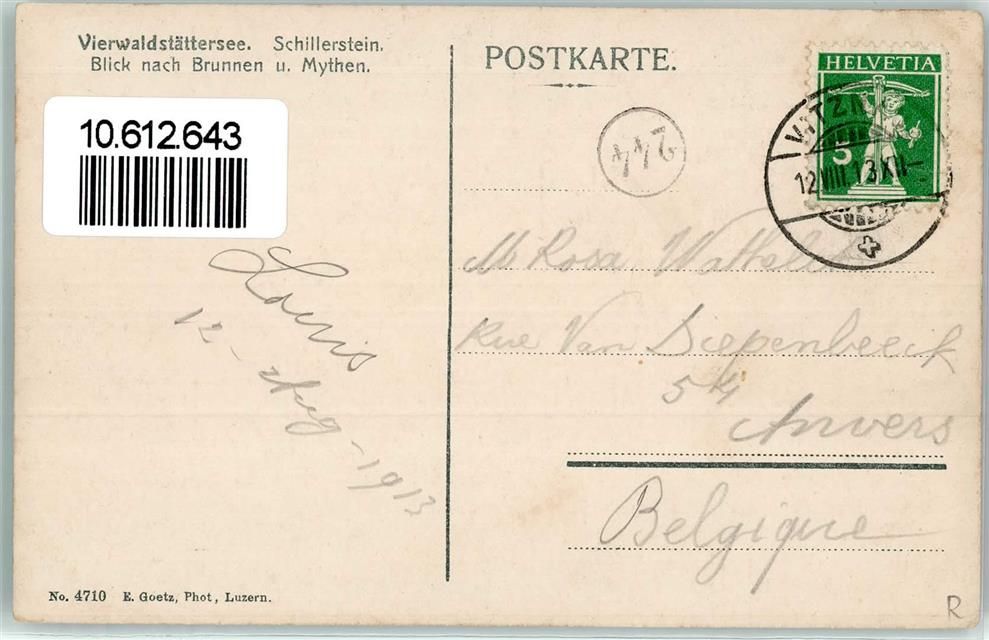 Vierwaldstättersee. Schillerstein.
Blick nach Brunnen u. Mythen.
10.612.643
POSTKARTE.
HELVETIA
5
VITZNAU
12.VIII.13.XII—
244
Louis
12 - Aug - 1913
M Rosa
Rue Van Diepenbeeck
54
Anvers
Belgique
No. 4710 E. Goetz, Phot, Luzern.
R